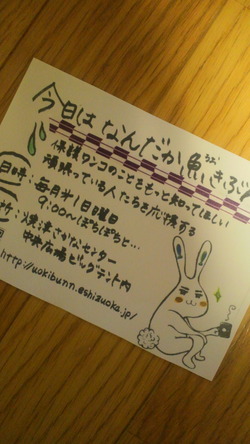 今日はなんだか魚きぶん
うお
保護ワンコのことをもっと知ってほしい
頑張っている人たちを応援する
日時: 毎月第1日曜日
9:00〜ぼちぼちと…
焼津さかなセンター
中央広場ビッグテント内
http://uokibunn.eshizuoka.jp/